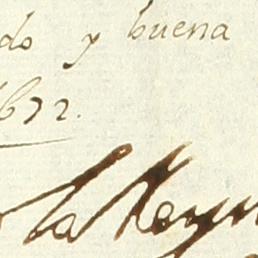 do y buena
1672.
la Reyn